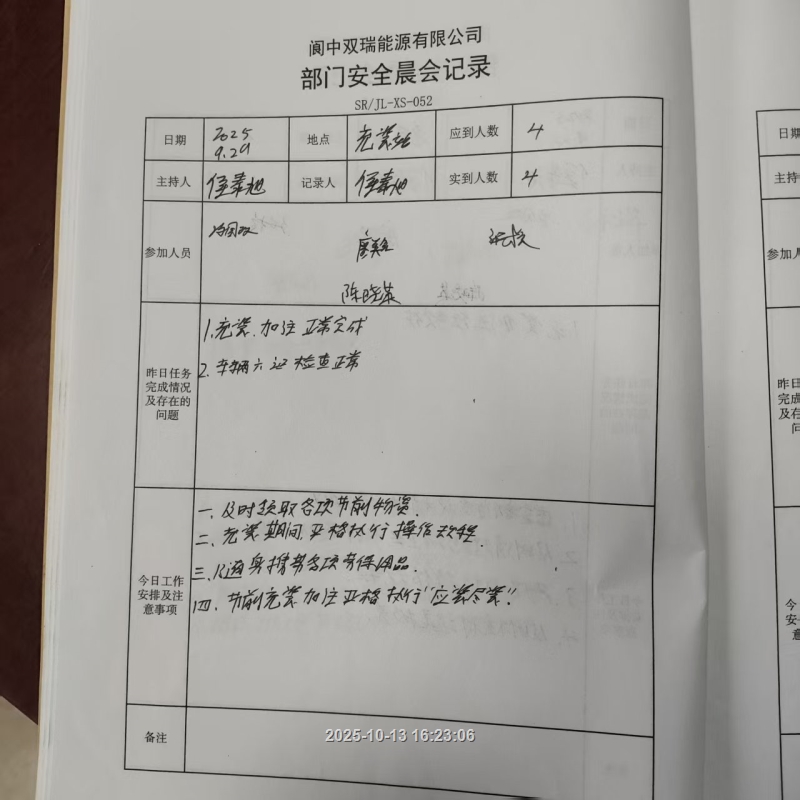 阆中双瑞能源有限公司
部门安全晨会记录
SR/JL-XS-052
日期 2025 9.29 地点 充装站 应到人数 4
主持人 记录人 实到人数 4
参加人员
陈晓蓉
昨日任务完成情况及存在的问题
1.充装.加注正常完成
2.车辆六证检查正常
今日工作安排及注意事项
一、及时领取各项节前物资.
二、充装期间,严格执行操作规程.
三、随身携带各项劳保用品.
四、节前充装加注严格执行“应装尽装”!
备注
2025-10-13 16:23:06
日期
主持
参加人
昨日
完成
及存
问
今
安
意
备